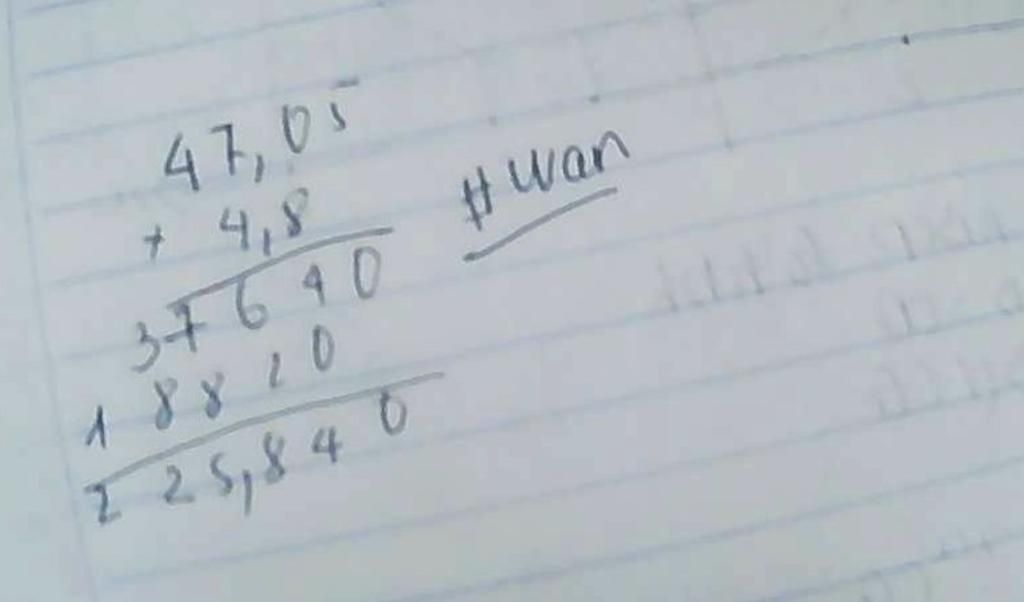 47,05
+ 4,8
37640
18820
225,840
#wan